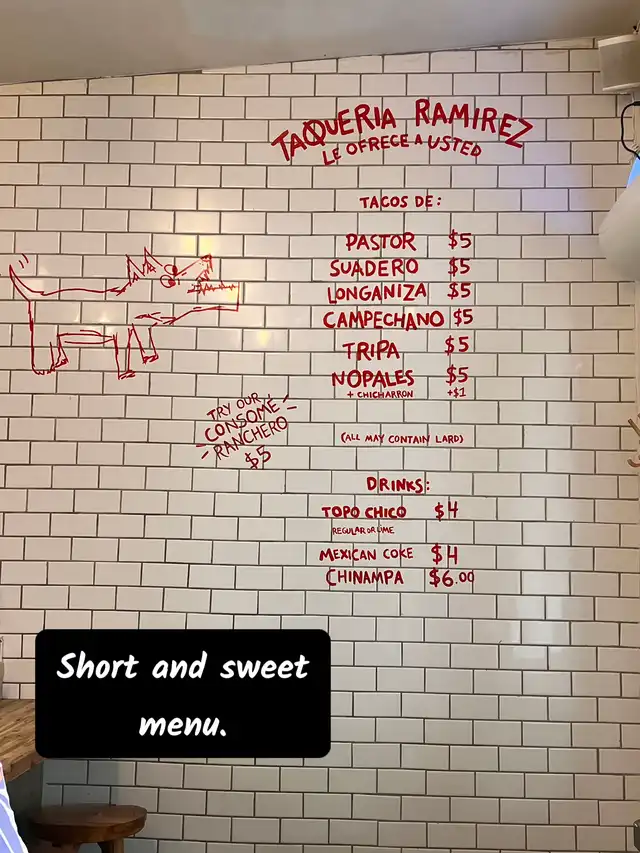 TAQUERIA RAMIREZ
LE OFRECE A USTED
TACOS DE:
PASTOR $5
SUADERO $5
LONGANIZA $5
CAMPECHANO $5
TRIPA $5
NOPALES $5
+ CHICHARRON +$1
TRY OUR
CONSOMÉ
RANCHERO
$5
(ALL MAY CONTAIN LARD)
DRINKS:
TOPO CHICO $4
REGULAR OR LIME
MEXICAN COKE $4
CHINAMPA $6.00
Short and sweet
menu.